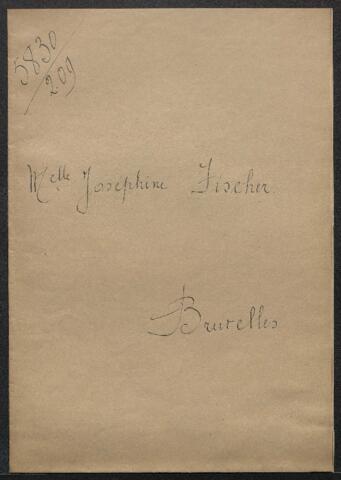 5830
209
Melle Josephine Fischer
Bruxelles